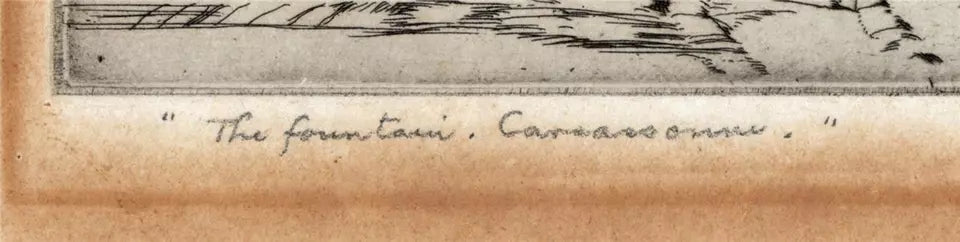 " The fountain. Carcassonne. "